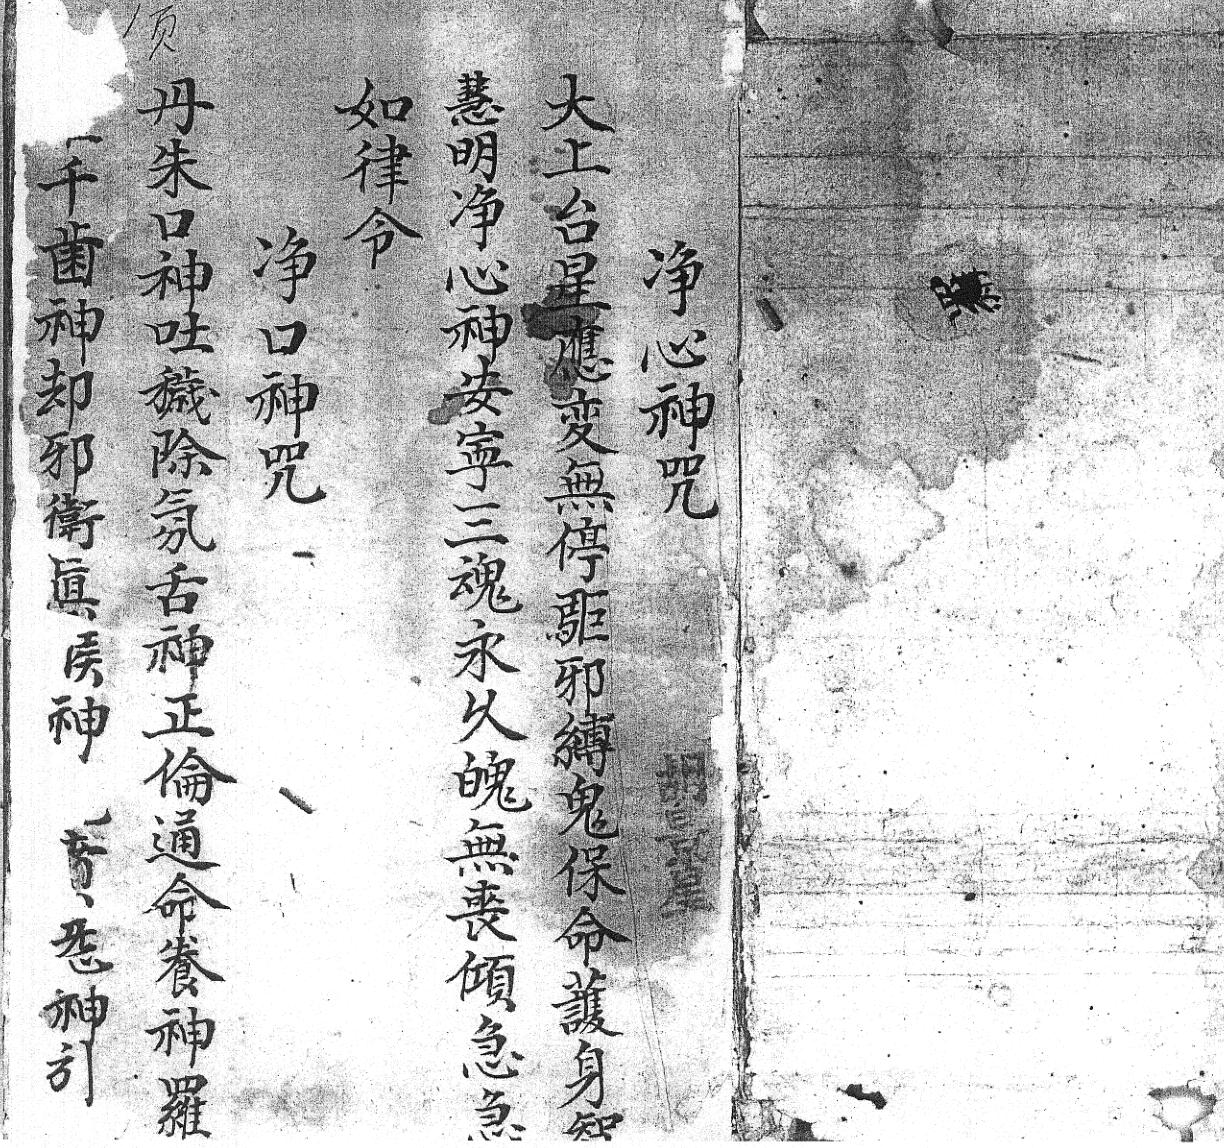 净心神咒
大上台星應変無停駈邪縛鬼保命護身智
慧明净心神安寧三魂永久魄無丧傾急急
如律令
净口神咒
丹朱口神吐穢除氛舌神正倫通命養神羅
千歯神却邪衛眞侯神 炁神引